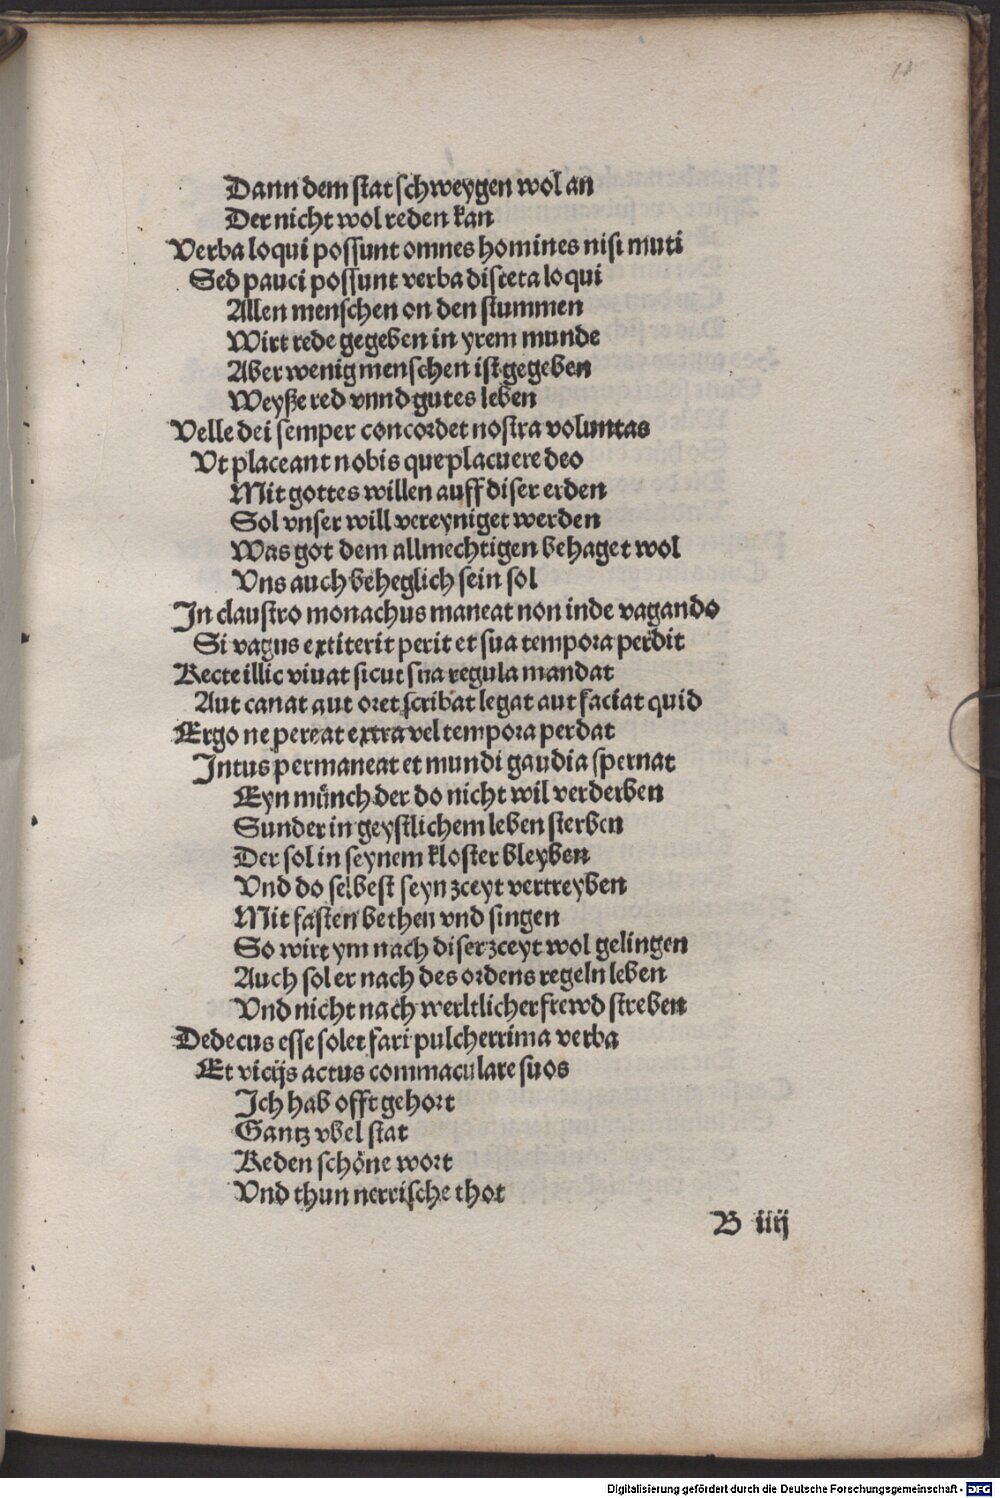 Dann dem stat schweygen wol an
Der nicht wol reden kan
Verba loqui possunt omnes homines nisi muti
Sed pauci possunt verba disceta loqui
Allen menschen on den stummen
Wirt rede gegeben in yrem munde
Aber wenig menschen ist gegeben
Weyße red vnnd gutes leben
Velle dei semper concordet nostra voluntas
Vt placeant nobis que placuere deo
Mit gottes willen auff diser erden
Sol vnser will vereyniget werden
Was got dem allmechtigen behaget wol
Vns auch beheglich sein sol
In claustro monachus maneat non inde vagando
Si vagus extiterit perit et sua tempora perdit
Recte illic viuat sicut sua regula mandat
Aut canat aut oret scribat legat aut faciat quid
Ergo ne pereat extra vel tempora perdat
Intus permaneat et mundi gaudia spernat
Eyn münch der do nicht wil verderben
Sunder in geystlichem leben sterben
Der sol in seynem kloster bleyben
Vnd do selbest seyn zceyt vertreyben
Mit fasten bethen vnd singen
So wirt ym nach diser zceyt wol gelingen
Auch sol er nach des ordens regeln leben
Vnd nicht nach werltlicher frewd streben
Dedecus esse solet fari pulcherrima verba
Et vicijs actus commaculare suos
Ich hab offt gehort
Gantz vbel stat
Reden schöne wort
Vnd thun nerrische thot
B iiij
Digitalisierung gefördert durch die Deutsche Forschungsgemeinschaft - DFG